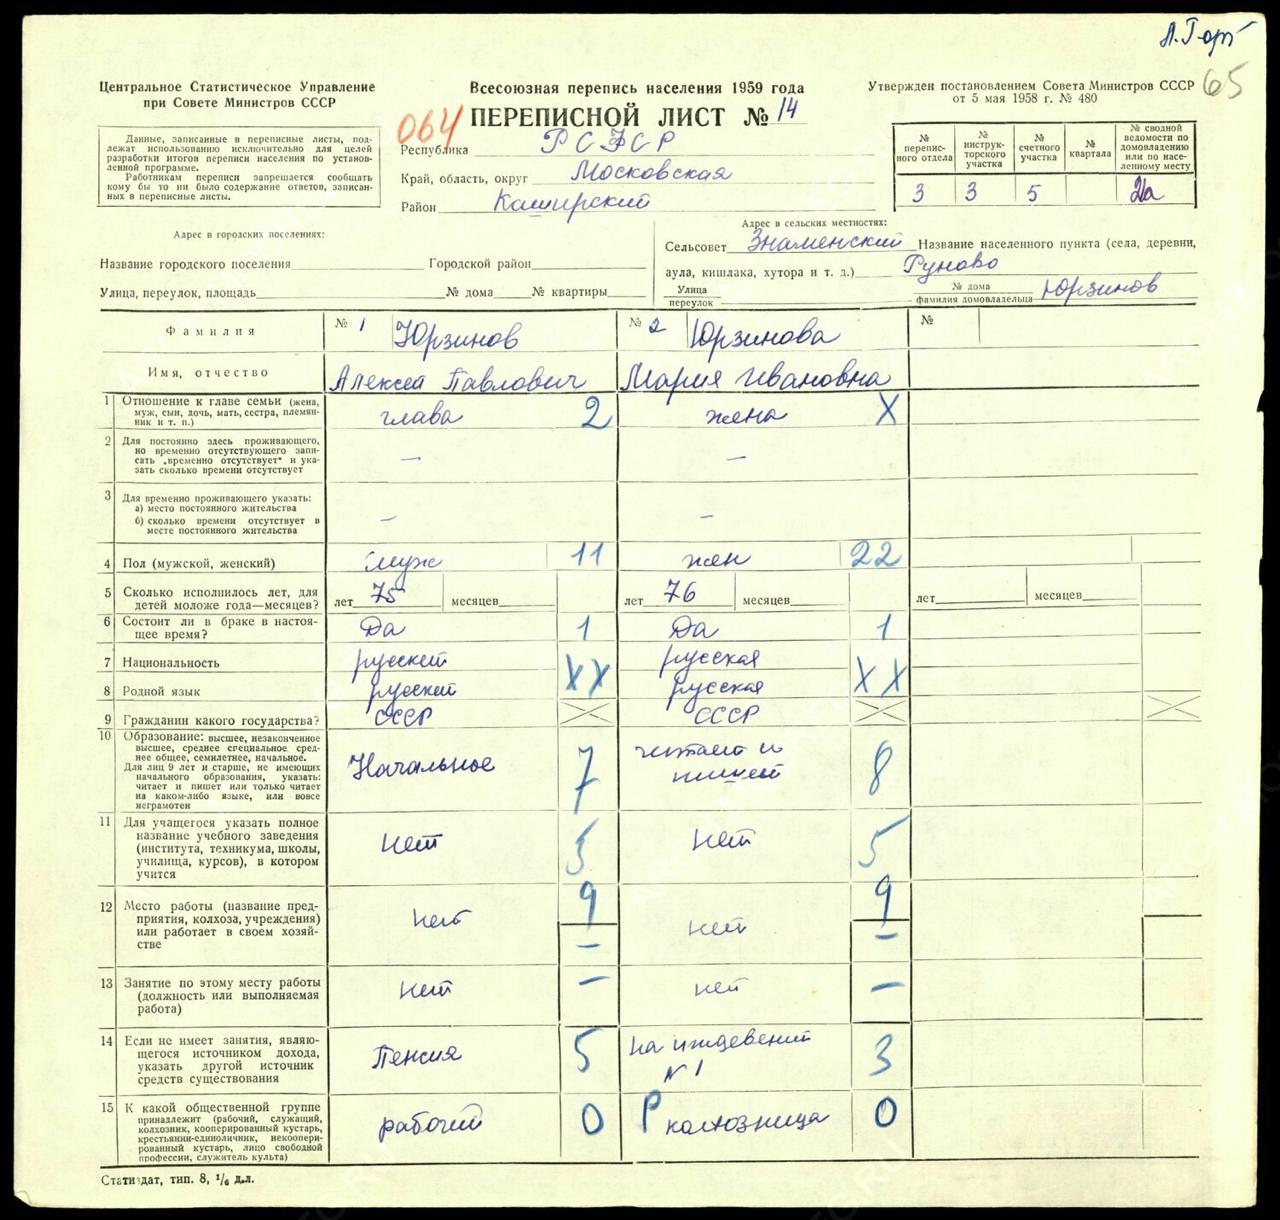 А. Горб
65
Центральное Статистическое Управление
при Совете Министров СССР
Данные, записанные в переписные листы, под-
лежат использованию исключительно для целей
разработки итогов переписи населения по установ-
ленной программе.
Работникам переписи запрещается сообщать
кому бы то ни было содержание ответов, записан-
ных в переписные листы.
Всесоюзная перепись населения 1959 года
064 ПЕРЕПИСНОЙ ЛИСТ № 14
Республика РСФСР
Край, область, округ Московская
Район Каширский
Утвержден постановлением Совета Министров СССР
от 5 мая 1958 г. № 480
№ переписного отдела
№ инструкторского участка
№ счетного участка
№ квартала
№ сводной ведомости по домовладению или по населенному месту
3 3 5 2а
Адрес в городских поселениях:
Название городского поселения Городской район
Улица, переулок, площадь № дома № квартиры
Адрес в сельских местностях:
Сельсовет Знаменский Название населенного пункта (села, деревни,
аула, кишлака, хутора и т. д.) Руново
Улица
переулок
№ дома
фамилия домовладельца Юрзинов
Фамилия № 1 Юрзинов № 2 Юрзинова №
Имя, отчество Алексей Павлович Мария Ивановна
1 Отношение к главе семьи (жена,
муж, сын, дочь, мать, сестра, племян-
ник и т. п.)
глава 2 жена X
2 Для постоянно здесь проживающего,
но временно отсутствующего запи-
сать „временно отсутствует“ и ука-
зать сколько времени отсутствует
— —
3 Для временно проживающего указать:
а) место постоянного жительства
б) сколько времени отсутствует в
месте постоянного жительства
— —
4 Пол (мужской, женский) муж 11 жен 22
5 Сколько исполнилось лет, для
детей моложе года—месяцев?
лет 75 месяцев лет 76 месяцев лет месяцев
6 Состоит ли в браке в настоя-
щее время?
Да 1 Да 1
7 Национальность русский русская
8 Родной язык русский XX русская XX
9 Гражданин какого государства? СССР СССР
10 Образование: высшее, незаконченное
высшее, среднее специальное, сред-
нее общее, семилетнее, начальное.
Для лиц 9 лет и старше, не имеющих
начального образования, указать:
читает и пишет или только читает
на каком-либо языке, или вовсе
неграмотен
Начальное 7 читает и
пишет 8
11 Для учащегося указать полное
название учебного заведения
(института, техникума, школы,
училища, курсов), в котором
учится
нет 5 нет 5
12 Место работы (название пред-
приятия, колхоза, учреждения)
или работает в своем хозяй-
стве
нет 9 — нет 9 —
13 Занятие по этому месту работы
(должность или выполняемая
работа)
нет — нет —
14 Если не имеет занятия, являю-
щегося источником дохода,
указать другой источник
средств существования
Пенсия 5 на иждевений
№ 1 3
15 К какой общественной группе
принадлежит (рабочий, служащий,
колхозник, кооперированный кустарь,
крестьянин-единоличник, некоопери-
рованный кустарь, лицо свободной
профессии, служитель культа)
рабочий 0 Р колхозница 0
Статиздат, тип. 8, 1/6 д.л.